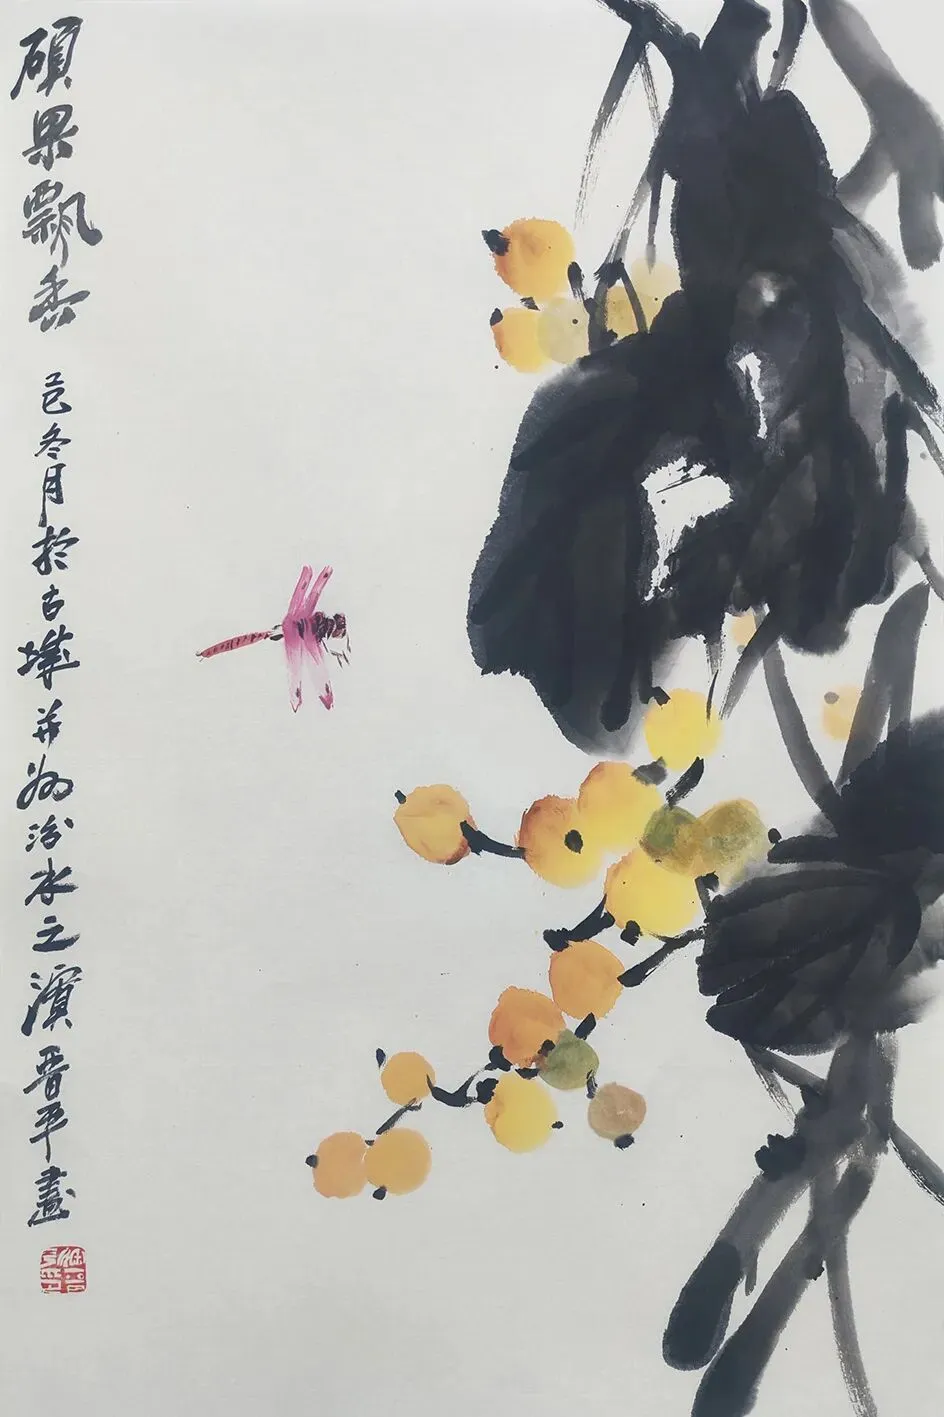 碩果飄香 乙巳冬月於古城并州汾水之濱晋平畫